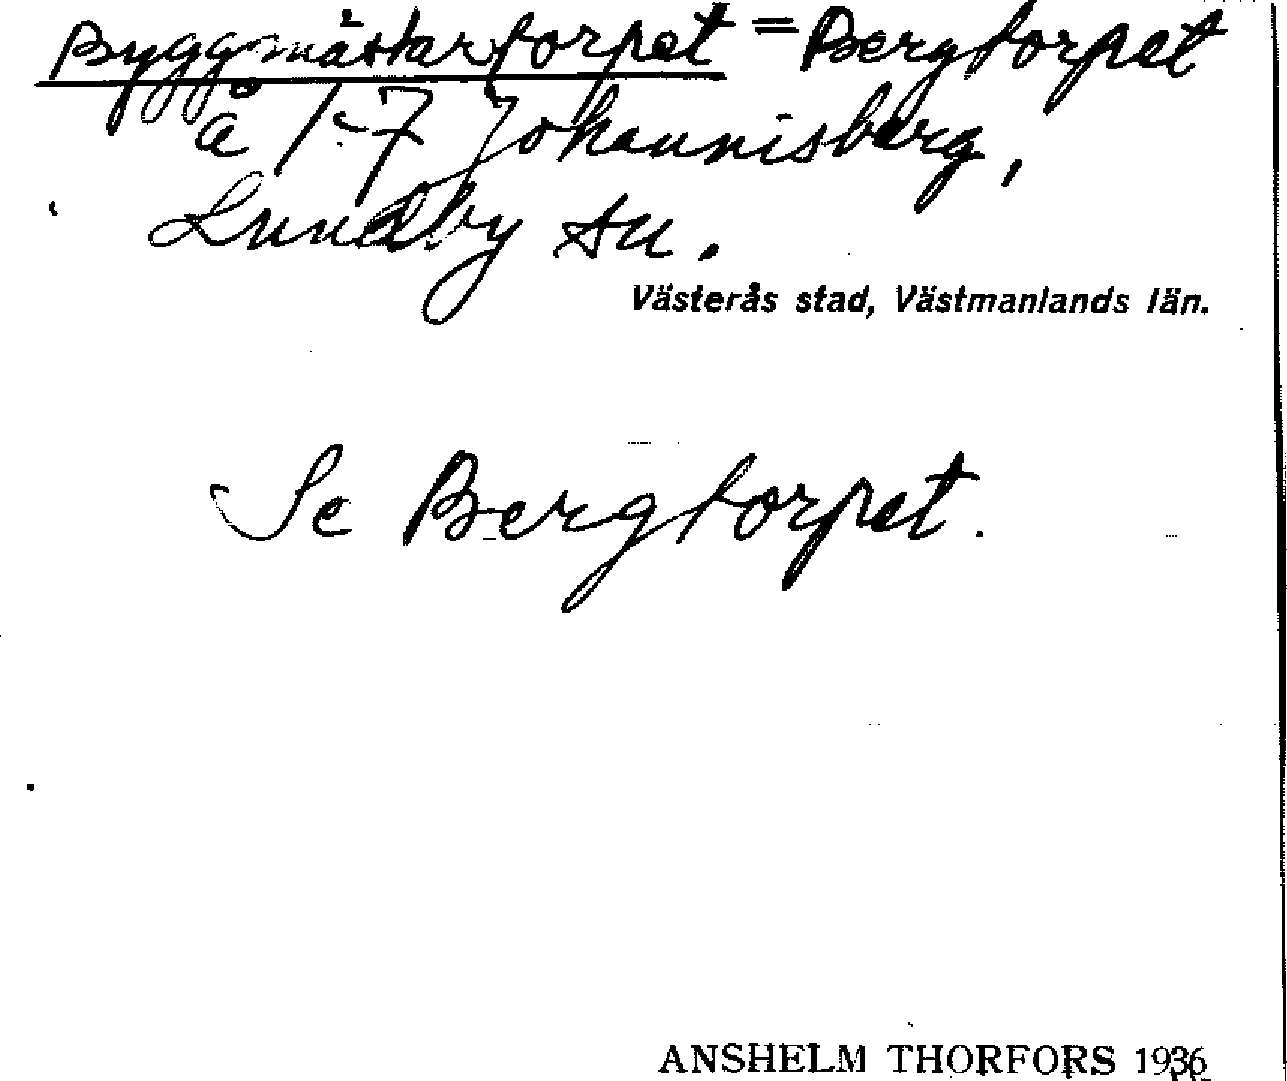 Byggmästartorpet = Bergtorpet
å 1-7 Johannisberg,
Lundby sn.
Västerås stad, Västmanlands län.
Se Bergtorpet.
ANSHELM THORFORS 1936